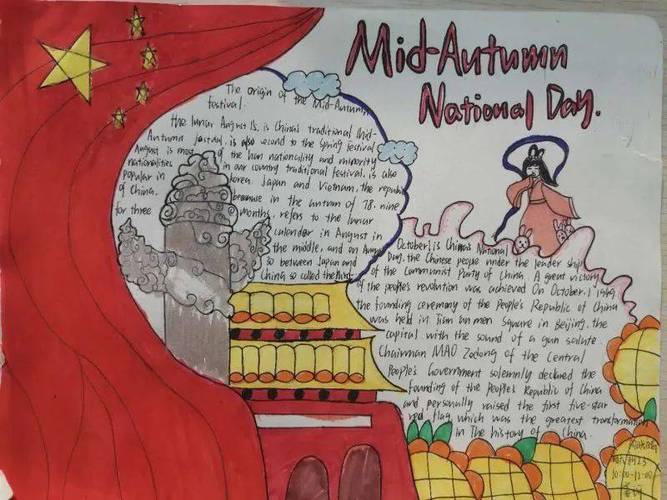 Mid-Autumn
National Day.
The origin of the Mid-Autumn
festival
the lunar August 15, is China's traditional Mid-
Autumn festival, is also second to the spring festival
August, is most of the han nationality and minority
nationalities in our country traditional festival, is also
popular in korea Japan and Vietnam, the republic
of China. because in the autumn of 78. nine
for three months, refers to the lunar
calendar in August in
the middle, and on August
so between Japan and
China so called the
October 1 is China's National
Day, the Chinese people under the leader ship
of the Communist Party of China. A great victory
of the people's revolution was achieved On October, 1 1949,
the founding ceremony of the People's Republic of China
was held in Tian an men Square in Beijing. the
capital with the sound of a gun salute.
Chairman MAO Zedong of the Central
People's Government solemnly declared the
founding of the People's Republic of China
and personally raised the first five-star
red flag, which was the greatest transformation
in The history of China.